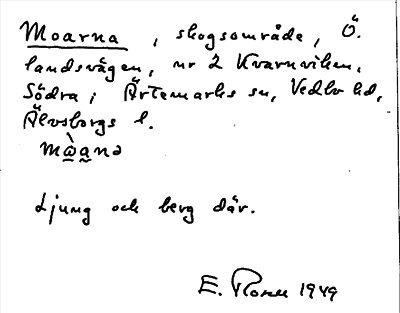 Moarna, skogsområde, Ö.
landsvägen, nr 2 Kvarnviken,
Södra, Ärtemarks sn, Vedbo hd,
Älvsborgs l.
mòana
Ljung och berg där.
E. Rosen 1949